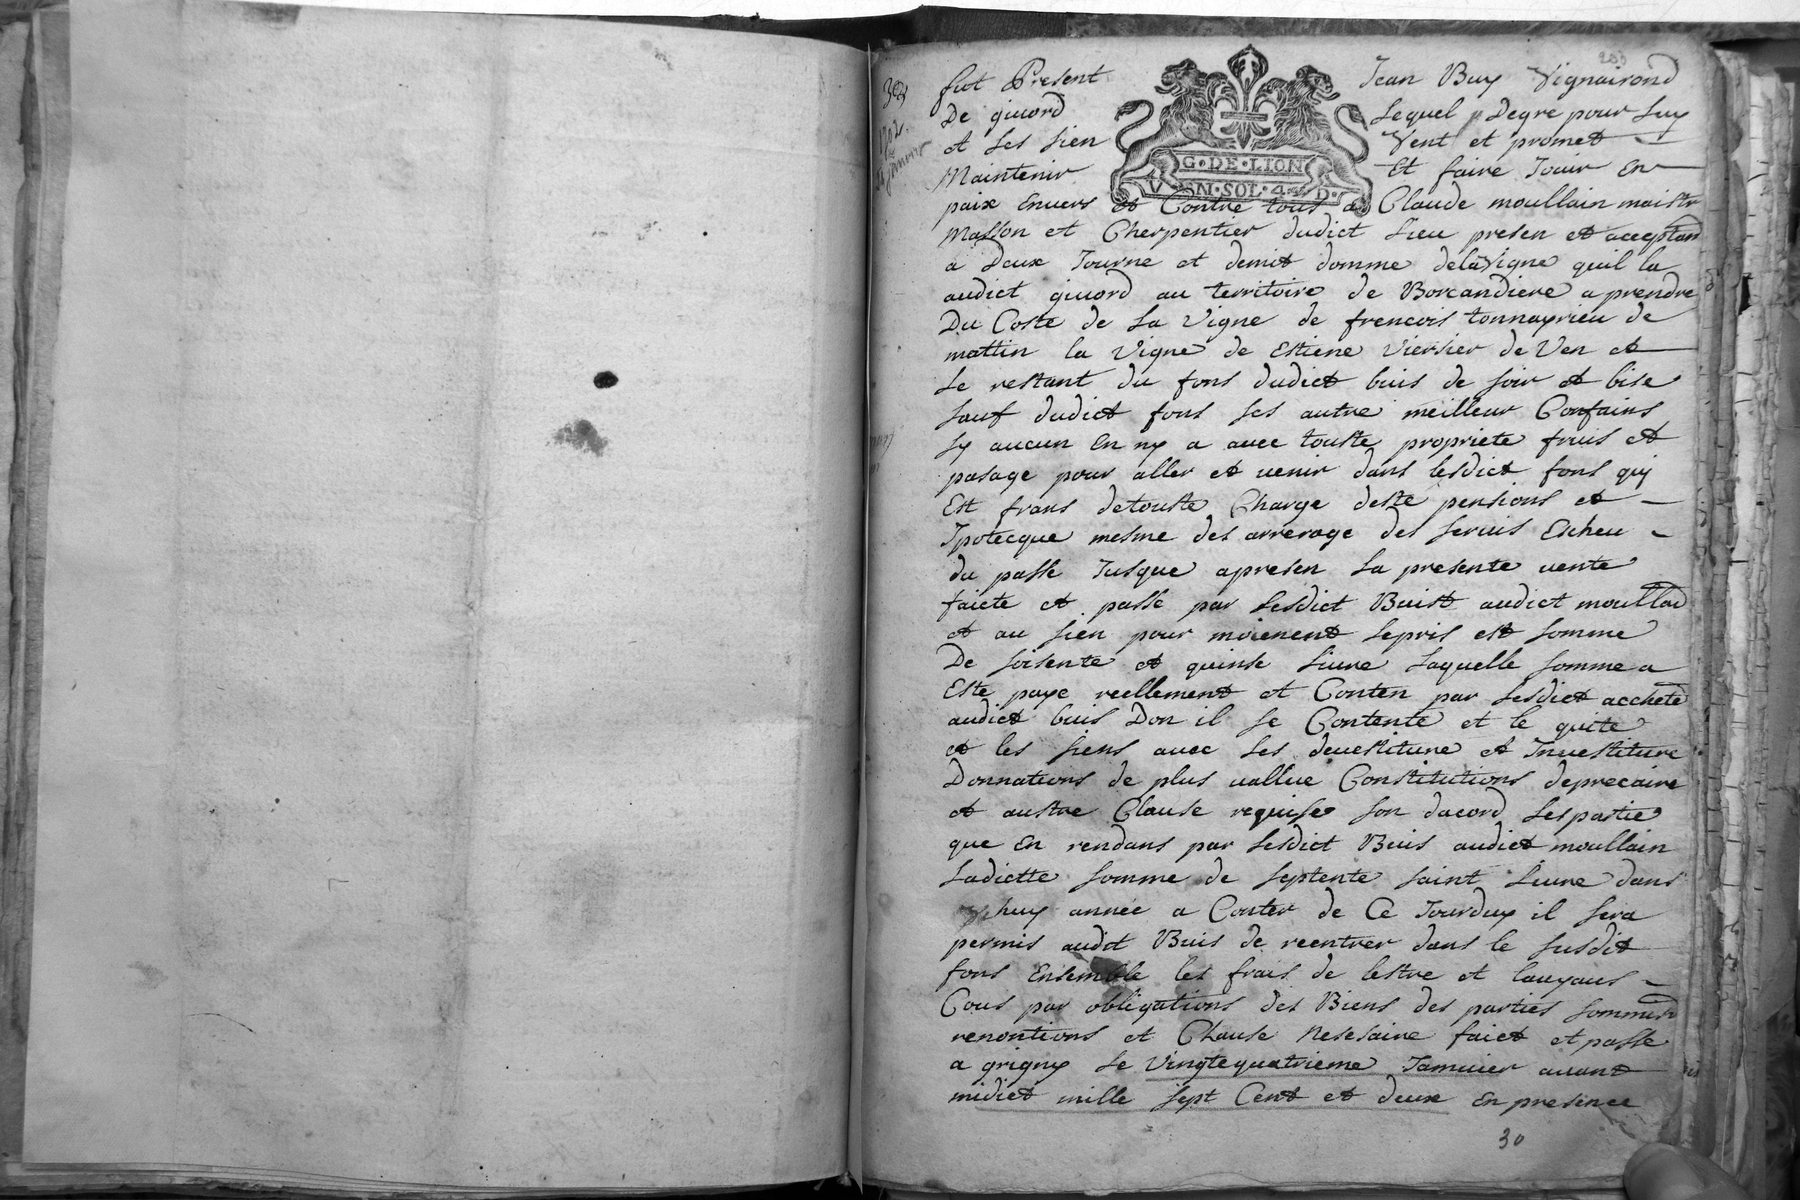 304
1702.
24 Janvier
203
fut Present Jean Buy Vignairond
De givord Lequel Degre pour Luy
et Les sien Vent et promet
Maintenir Et faire Jouir En
G·DE·LION
VN·SOL·4·D·
paix Envers et Contre tous a Claude moullain maistr
Masson et Cherpentier dudict Lieu presen et acceptan
a Deux Journe et demit domme delaVigne quil la
audict givord au territoire de Borcandiere a prendre
Du Coste de La Vigne de frencois tonnayrieu de
mattin la Vigne de Estiene Viersier de Ven et
Le restant du fons dudict buis de soir et bise
sauf dudict fons ses autre meilleur Confains
sy aucun En ny a avec touste propriete fruis et
pasage pour aller et venir dans lesdict fons quj
Est frans detouste Charge deste pensions et
Jpotecque mesme des arrerage des servis Escheu
du passe Jusque apresen La presente vente
faicte et passe par Lesdict Buist audict moullad
et au sien pour moienent Lepris est somme
De soisente et quinse Livre Laquelle somme a
Este paye reellement et Conten par Lesdict accheté
audict buis Don il se Contente et le quite
et les siens avec Les devestiture et Investiture
Donnations de plus vallue Constitutions deprecaire
et austre Clause requise son dacord Lespartie
que En rendans par Lesdict Buis audict moullain
Ladictte somme de septente saint Livre dans
huy année a Conter de Ce Jourduy il sera
permis audict Buis de reentrer dans le susdit
fons Ensemble les frais de lestre et lauyaus
Cous par obligations des Biens des parties sommis
renontions et Clause Nesesaire faict et passe
a grigny Le Vingtequatrieme Januier avant
midict mille sept Cent et deux En presence
30